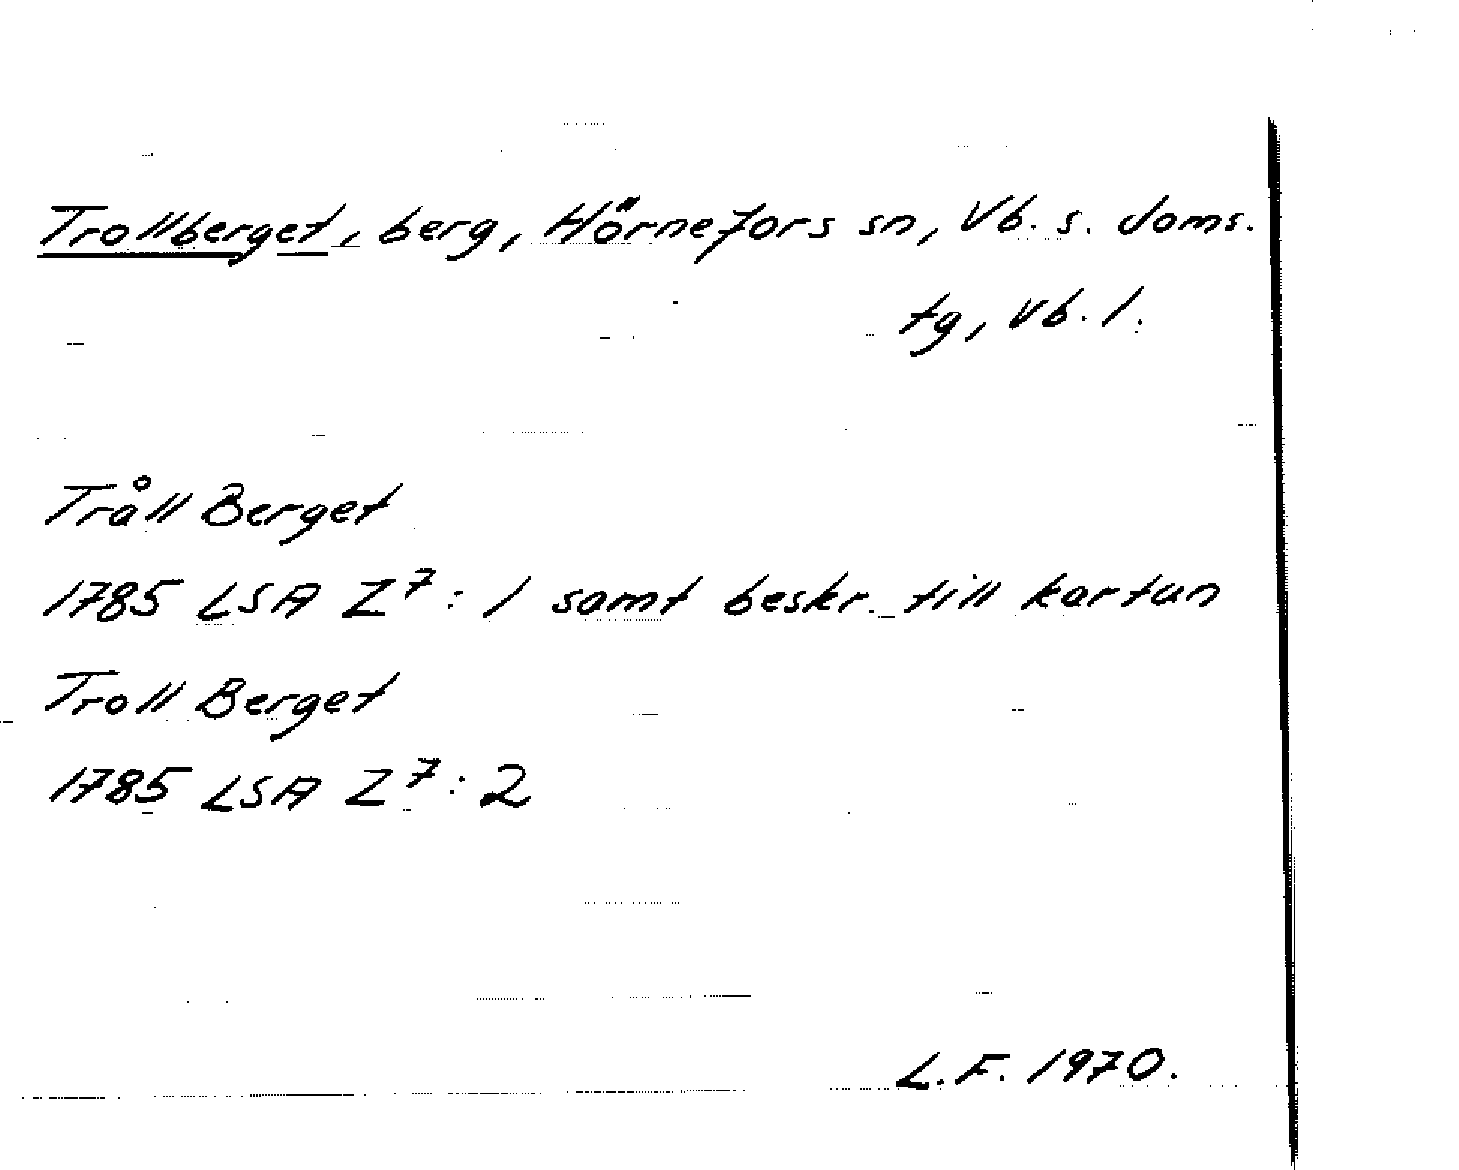 Trollberget, berg, Hörnefors sn, Vb. s. doms.
tg, Vb. l.
Tråll Berget
1785 LSA Z⁷: 1 samt beskr. till kartan
Troll Berget
1785 LSA Z⁷: 2
L.F. 1970.